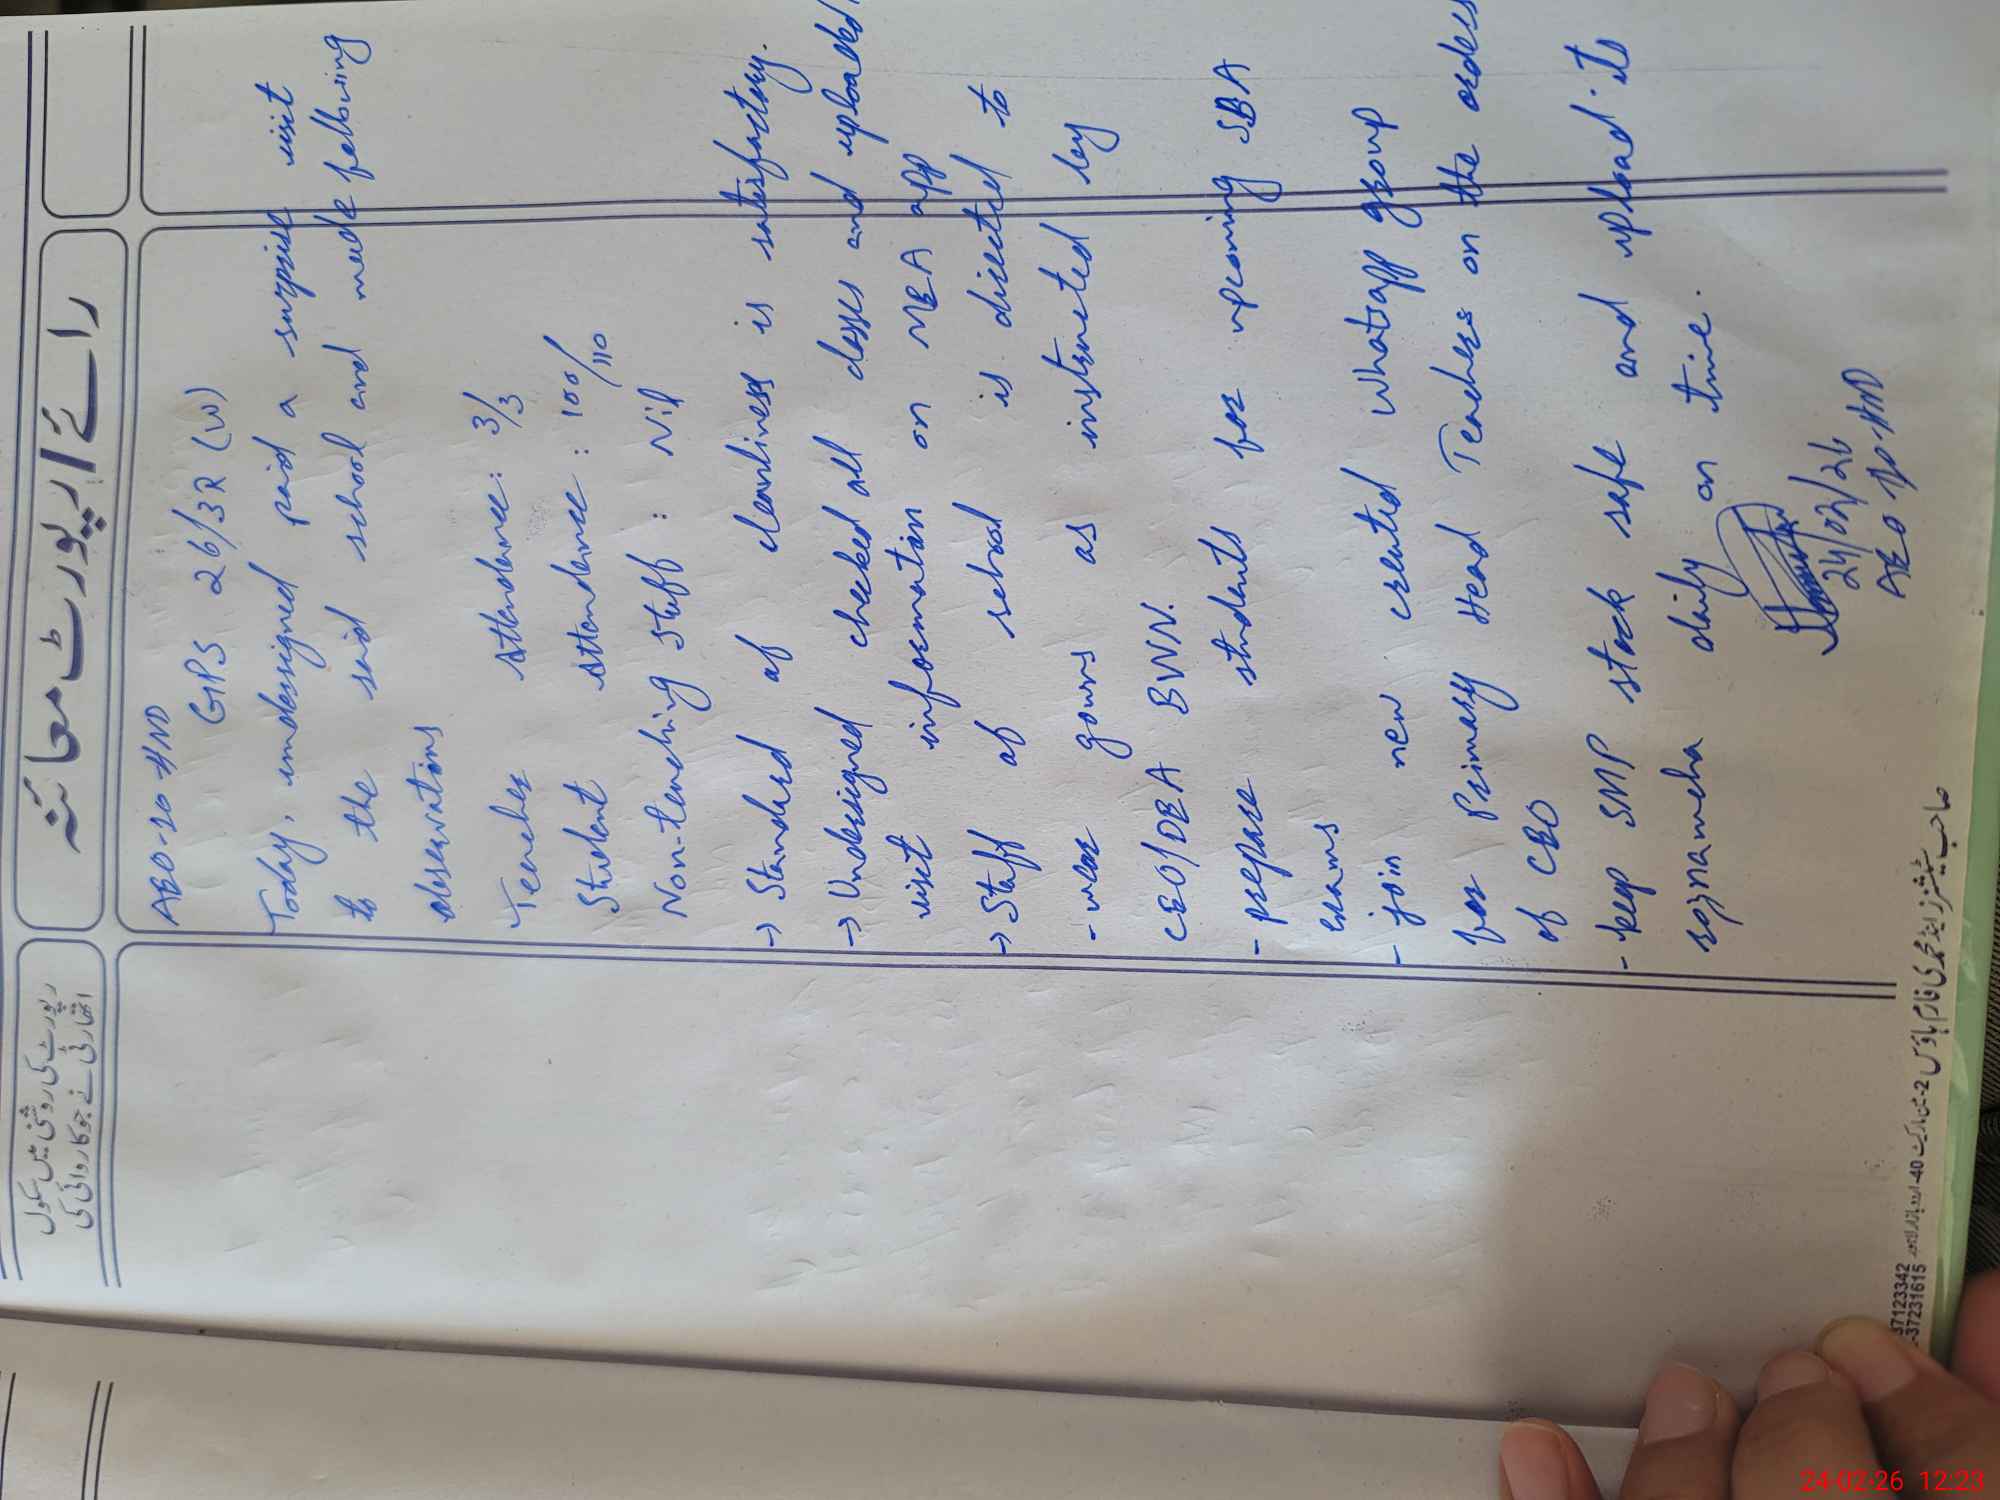 رپورٹ کی روشنی میں سکول
اتھارٹی نے جو کاروائی کی
رائے / رپورٹ معائنہ
AEO-20-HND
GPS 26/3R (W)
Today, undersigned paid a surprise visit
to the said school and made following
observations
Teacher attendence: 3/3
Student attendence: 100/110
Non-teaching staff: Nil
→ Standard of cleanliness is satisfactory.
→ Undersigned checked all classes and uploaded
visit information on MEA app
→ Staff of school is directed to
- wear gowns as instructed by
CEO/DEA BWN.
- prepare students for upcoming SBA
exams
- join new created whatsapp group
for Primary Head Teachers on the orders
of CEO
- keep SMP stock safe and upload its
roznamcha daily on time.
24/02/26
AEO 20-HND
37123342
-37231615
24-02-26 12:23